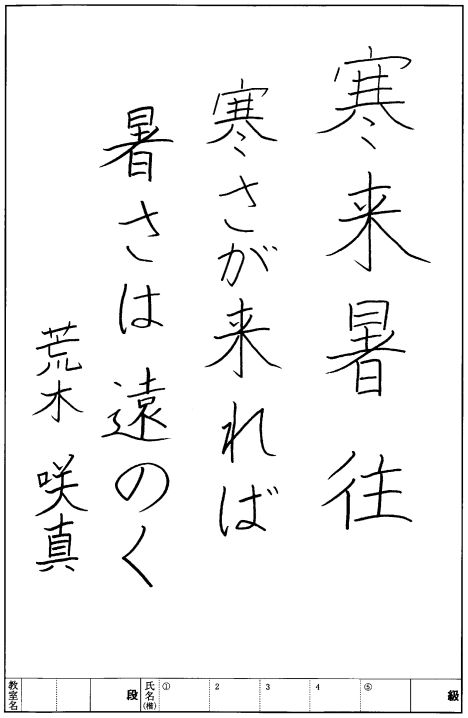 寒来暑往
寒さが来れば
暑さは遠のく
荒木 咲真
級
⑤
4
3
2
①
氏名(楷)
段
教室名